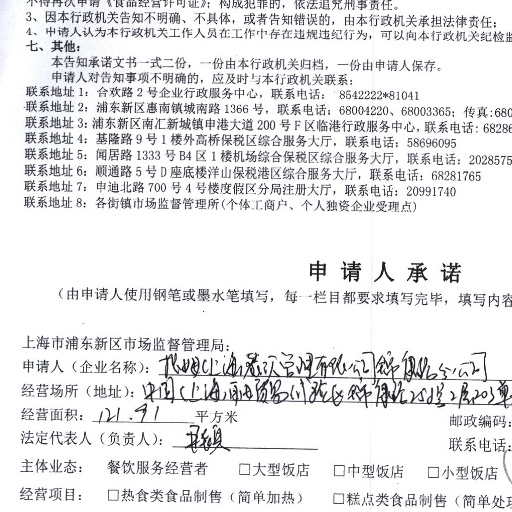 不得再次申请《食品经营许可证》；构成犯罪的，依法追究刑事责任。
3、因本行政机关告知不明确、不具体，或者告知错误的，由本行政机关承担法律责任；
4、申请人认为本行政机关工作人员在工作中存在违规违纪行为，可以向本行政机关纪检监
七、其他：
本告知承诺文书一式二份，一份由本行政机关归档，一份由申请人保存。
申请人对告知事项不明确的，应及时与本行政机关联系：
联系地址 1：合欢路 2 号企业行政服务中心，联系电话： 8542222*81041
联系地址 2：浦东新区惠南镇城南路 1366 号，联系电话：68004220、68003365；传真:680
联系地址 3：浦东新区南汇新城镇申港大道 200 号 F 区临港行政服务中心，联系电话: 68286
联系地址 4：基隆路 9 号 1 楼外高桥保税区综合服务大厅，联系电话：58696095
联系地址 5：闻居路 1333 号 B4 区 1 楼机场综合保税区综合服务大厅，联系电话：2028575
联系地址 6：顺通路 5 号 D 座底楼洋山保税港区综合服务大厅，联系电话：68281765
联系地址 7：申迪北路 700 号 4 号楼度假区分局注册大厅，联系电话：20991740
联系地址 8：各街镇市场监督管理所(个体工商户、个人独资企业受理点)
申请人承诺
（由申请人使用钢笔或墨水笔填写，每一栏目都要求填写完毕，填写内容
上海市浦东新区市场监督管理局：
申请人（企业名称）：（上海）管理有限公司分公司
经营场所（地址）：中国（上海）自由贸易试验区
经营面积：121.91 平方米 邮政编码：
法定代表人（负责人）： 联系电话：
主体业态： 餐饮服务经营者 □大型饭店 □中型饭店 □小型饭店
经营项目： □热食类食品制售（简单加热） □糕点类食品制售（简单处理